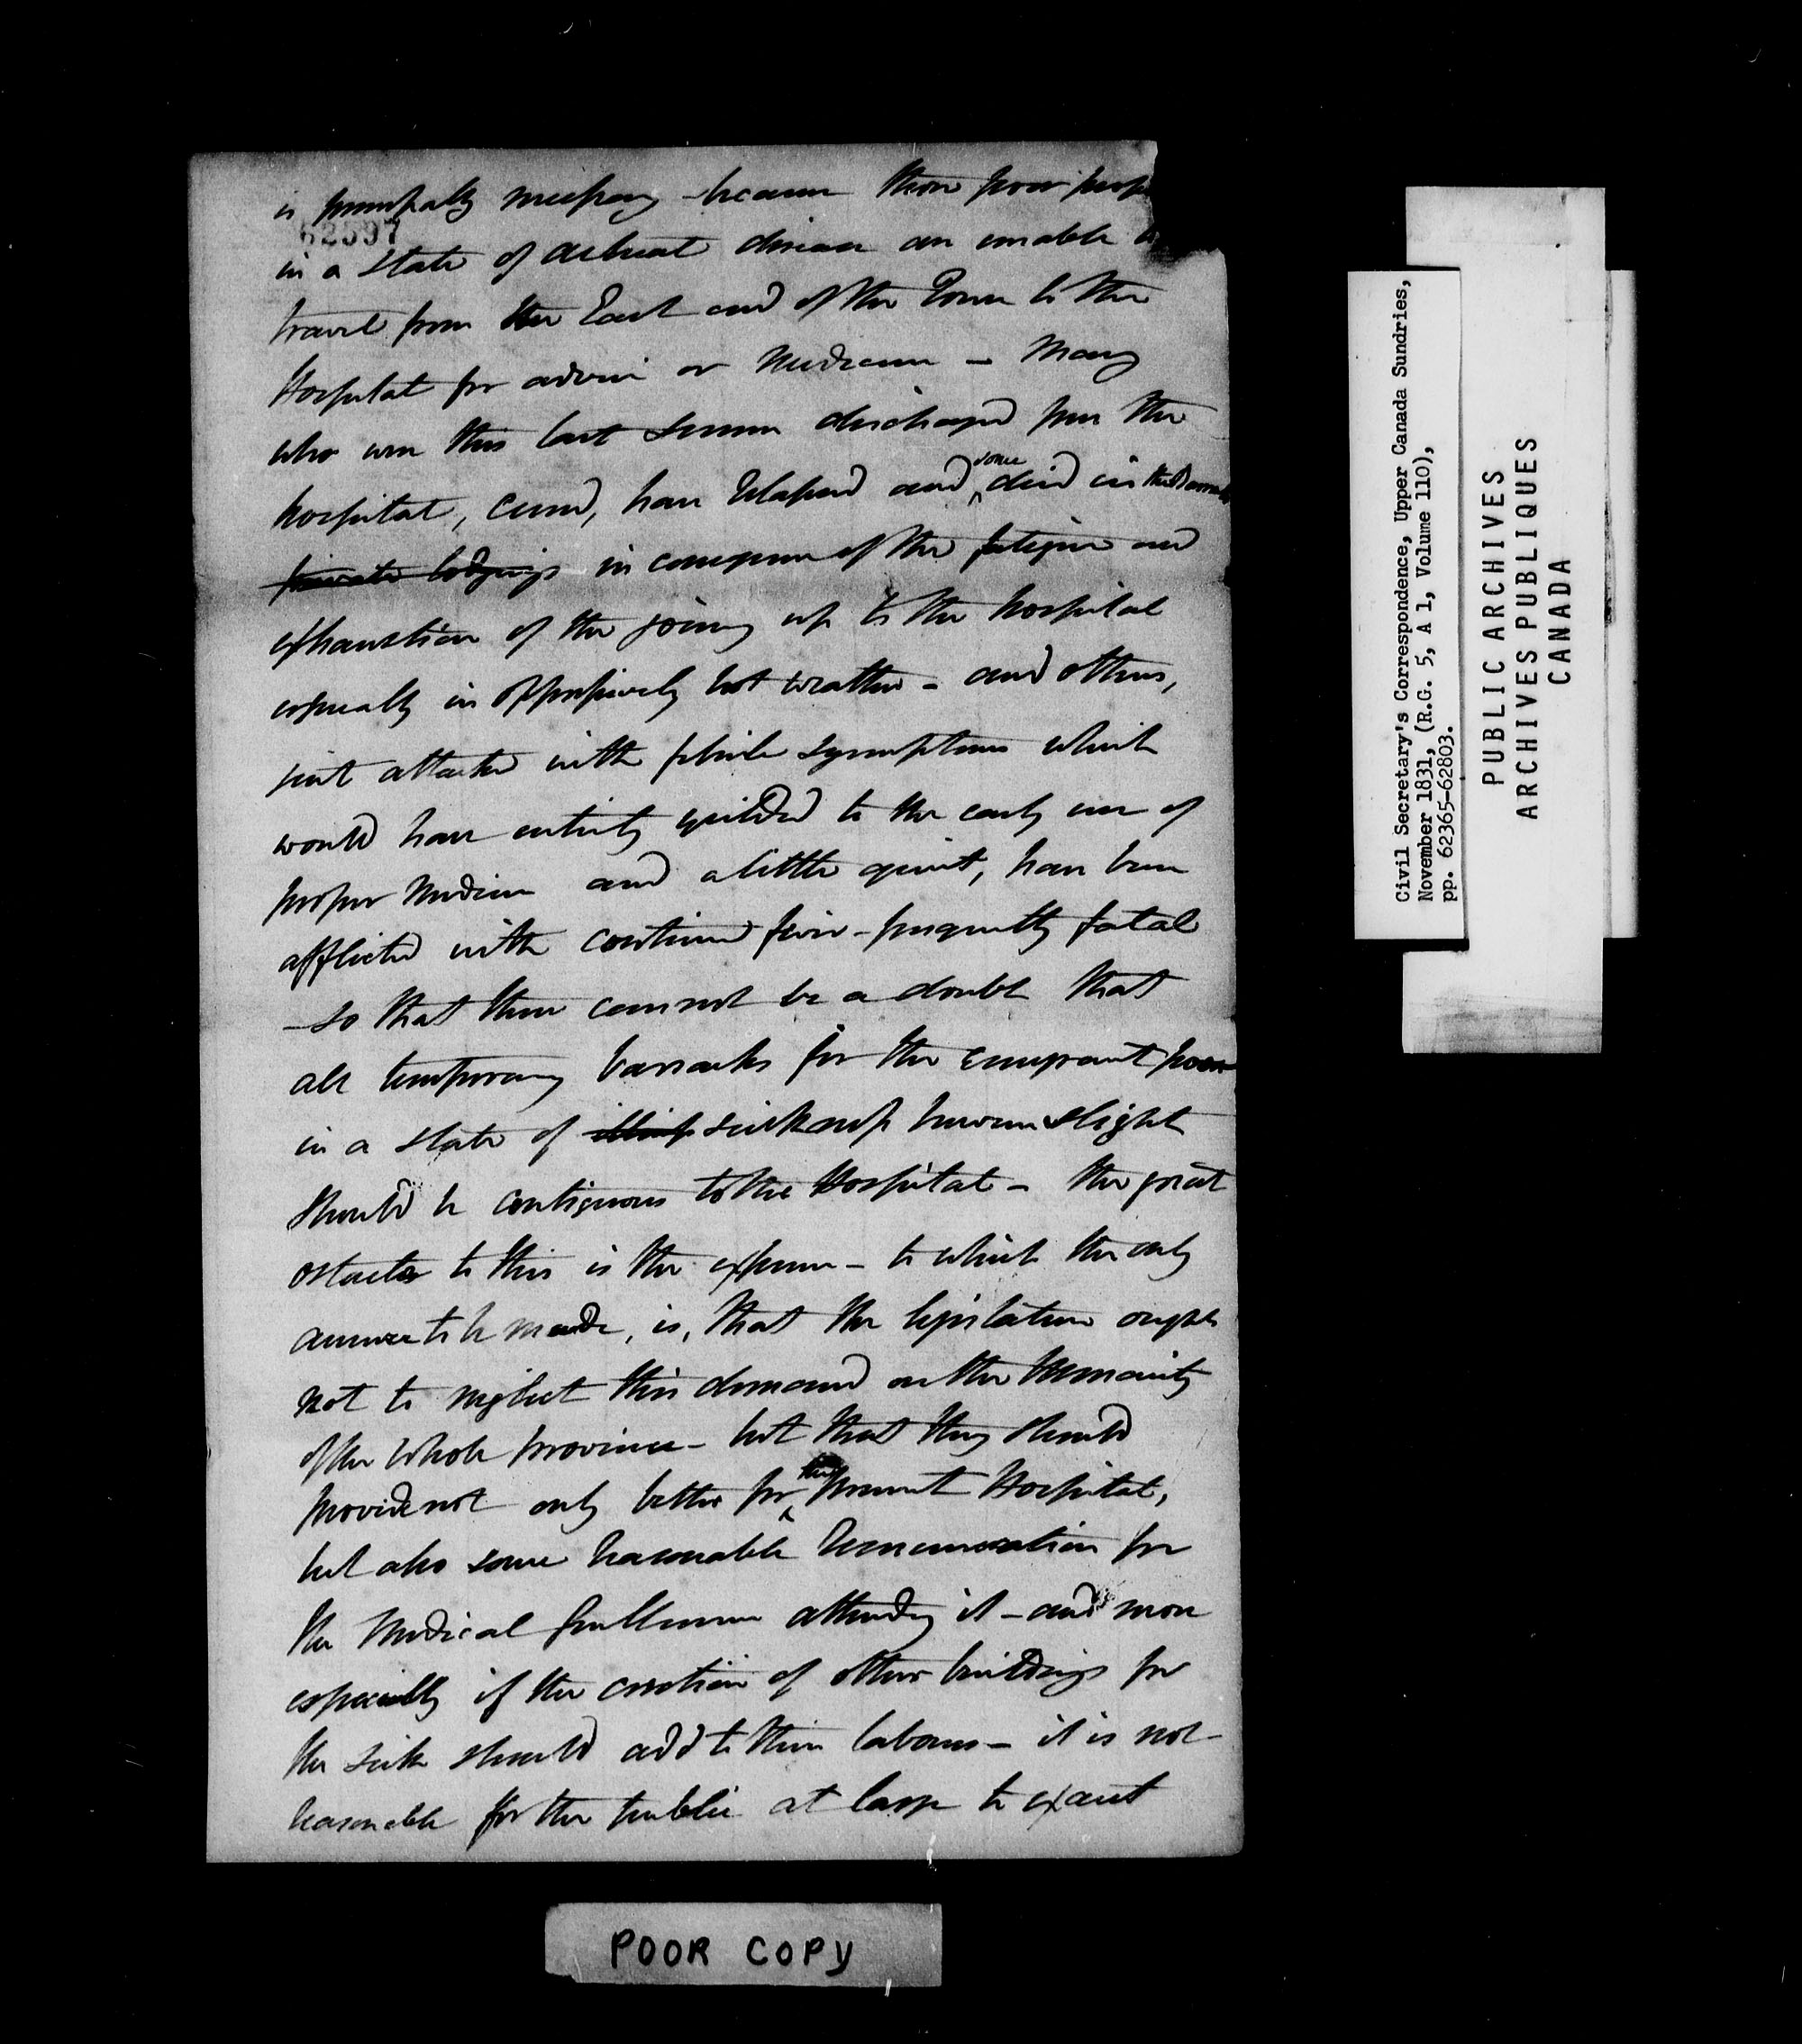 is principally necessary - because these poor peop
62597
in a state of actual disease are unable to
travel from the East end of the Town to the
Hospital for advice or Medicine - Many
who were this last Summer discharged from the
hospital, cured, have relapsed and some died in the Barracks
private lodgings in consequence of the fatigue and
exhaustion of the going up to the hospital
especially in oppressively hot weather - and others,
first attacked with febrile symptoms which
would have entirely yielded to the early use of
proper Medicine and a little quiet, have been
afflicted with continued fever - frequently fatal
- so that there cannot be a doubt that
all temporary barracks for the emigrant poor
in a state of illness sickness however slight
should be contiguous to the Hospital - the great
ostacle to this is the expense - to which the only
answer to be made, is, that the legislature ought
not to neglect this demand on the humanity
of the whole province - but that they should
provide not only better for the present Hospital,
but also some reasonable remuneration for
the Medical Gentlemen attending it - and more
especially if the erection of other buildings for
the sick should add to their labours - it is not
reasonable for the public at large to expect
POOR COPY
Civil Secretary's Correspondence, Upper Canada Sundries,
November 1831, (R.G. 5, A 1, Volume 110),
pp. 62365-62803.
PUBLIC ARCHIVES
ARCHIVES PUBLIQUES
CANADA